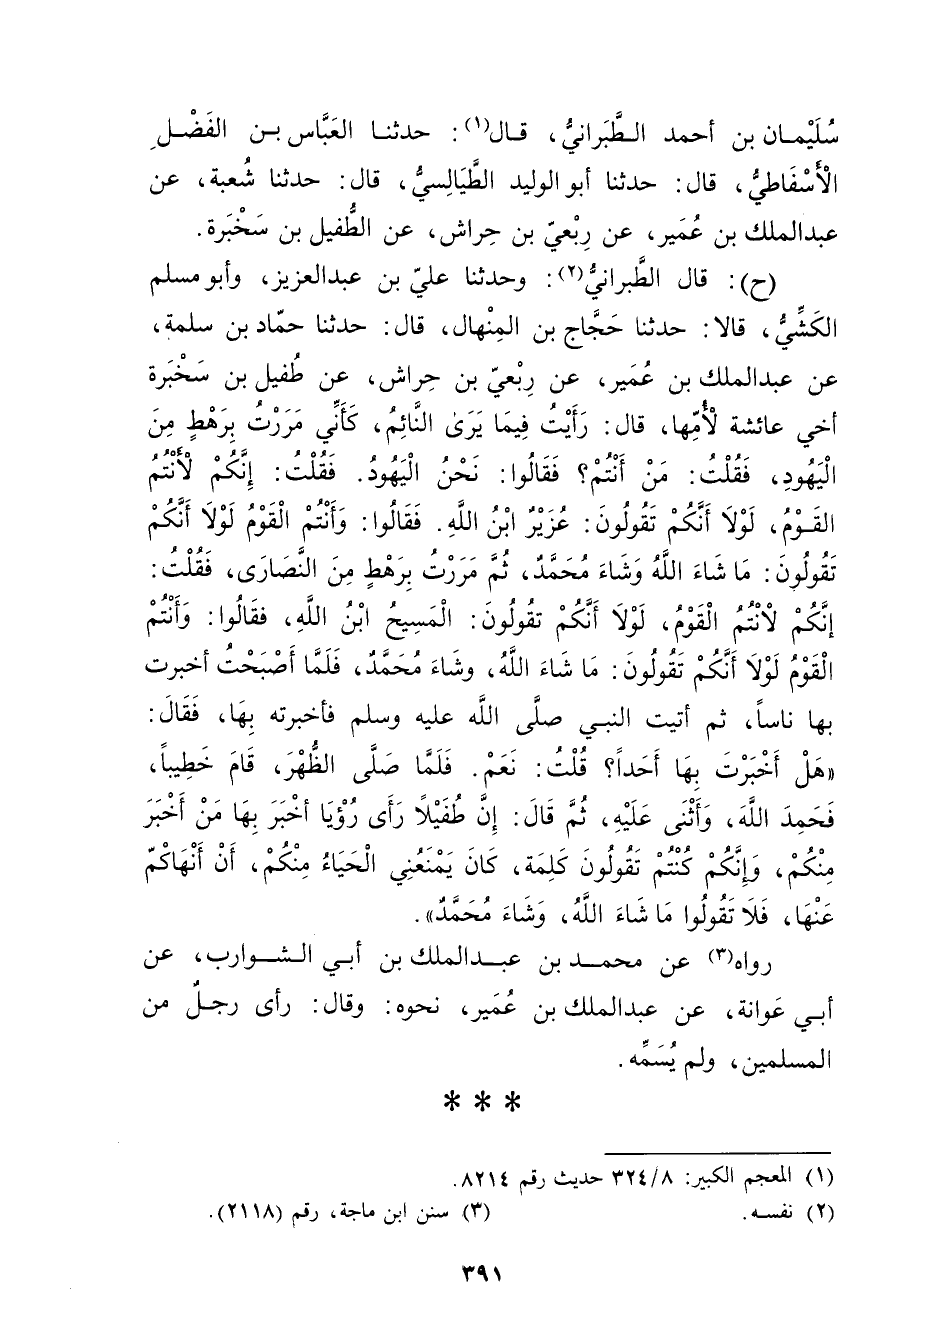 سُلَيْمـان بن أحمد الـطَّبَرانيُّ، قـال(١): حدثنـا العَبَّاس بـن الفَضْـلِ
الْأَسْفَاطيُّ، قال: حدثنا أبو الوليد الطَّيالِسيُّ، قال: حدثنا شُعبة، عن
عبدالملك بن عُمَير، عن رِبْعيّ بن حِراش، عن الطُّفيل بن سَخْبَرة.
(ح): قال الطَّبرانيُّ(٢): وحدثنا عليّ بن عبدالعزيز، وأبو مسلم
الكَشِّيُّ، قالا: حدثنا حَجَّاج بن المِنْهال، قال: حدثنا حمَّاد بن سلمة،
عن عبدالملك بن عُمَير، عن رِبْعيّ بن حِراش، عن طُفيل بن سَخْبرة
أخي عائشة لْأُمِّها، قال: رَأَيْتُ فِيمَا يَرَىٰ النَّائِمُ، كَأَنِّي مَرَرْتُ بِرَهْطٍ مِنَ
الْيَهُودِ، فَقُلْتُ: مَنْ أَنْتُمْ؟ فَقَالُوا: نَحْنُ الْيَهُودُ. فَقُلْتُ: إِنَّكُمْ لْأَنْتُمُ
القَـوْمُ، لَوْلاَ أَنَّكُمْ تَقُولُونَ: عُزَيْرٌ ابْنُ اللَّهِ. فَقَالُوا: وَأَنْتُم الْقَوْمُ لَوْلاَ أَنَّكُمْ
تَقُولُونَ: مَا شَاءَ اللَّهُ وَشَاءَ مُحَمَّدٌ، ثُمَّ مَرَرْتُ بِرَهْطٍ مِنَ النَّصَارَى، فَقُلْتُ:
إِنَّكُمْ لَأنْتُمُ الْقَوْمُ، لَوْلاَ أَنَّكُمْ تقُولُونَ: الْمَسِيحُ ابْنُ اللَّهِ، فقَالُوا: وَأَنْتُم
الْقَوْمُ لَوْلاَ أَنَّكُمْ تَقُولُونَ: مَا شَاءَ اللَّهُ، وشَاءَ مُحَمَّدٌ، فَلَمَّا أَصْبَحْتُ أخبرت
بها ناساً، ثم أتيت النبـي صلَّى اللَّه عليه وسلم فأخبرته بِهَا، فَقَالَ:
«هَلْ أَخْبَرْتَ بِهَا أَحَداً؟ قُلْتُ: نَعَمْ. فَلَمَّا صَلَّى الظُّهْرَ، قَامَ خَطِيباً،
فَحَمِدَ اللَّهَ، وَأَثْنَى عَلَيْهِ، ثُمَّ قَالَ: إِنَّ طُفَيْلاً رَأَى رُؤْيَا أخْبَرَ بِهَا مَنْ أَخْبَرَ
مِنْكُمْ، وَإِنَّكُمْ كُنْتُمْ تَقُولُونَ كَلِمَة، كَانَ يَمْنَعُنِي الْحَيَاءُ مِنْكُمْ، أَنْ أَنْهَاكُمْ
عَنْهَا، فَلاَ تَقُولُوا مَا شَاءَ اللَّهُ، وَشَاءَ مُحَمَّدٌ».
رواه(٣) عن محمـد بن عبـدالملك بن أبـي الـشـوارب، عن
أبـي عَوانة، عن عبدالملك بن عُمَير، نحوه: وقال: رأى رجلٌ من
المسلمين، ولم يُسَمِّه.
* * *
(١) المعجم الكبير: ٣٢٤/٨ حديث رقم ٨٢١٤.
(٢) نفسه. (٣) سنن ابن ماجة، رقم (٢١١٨).
٣٩١